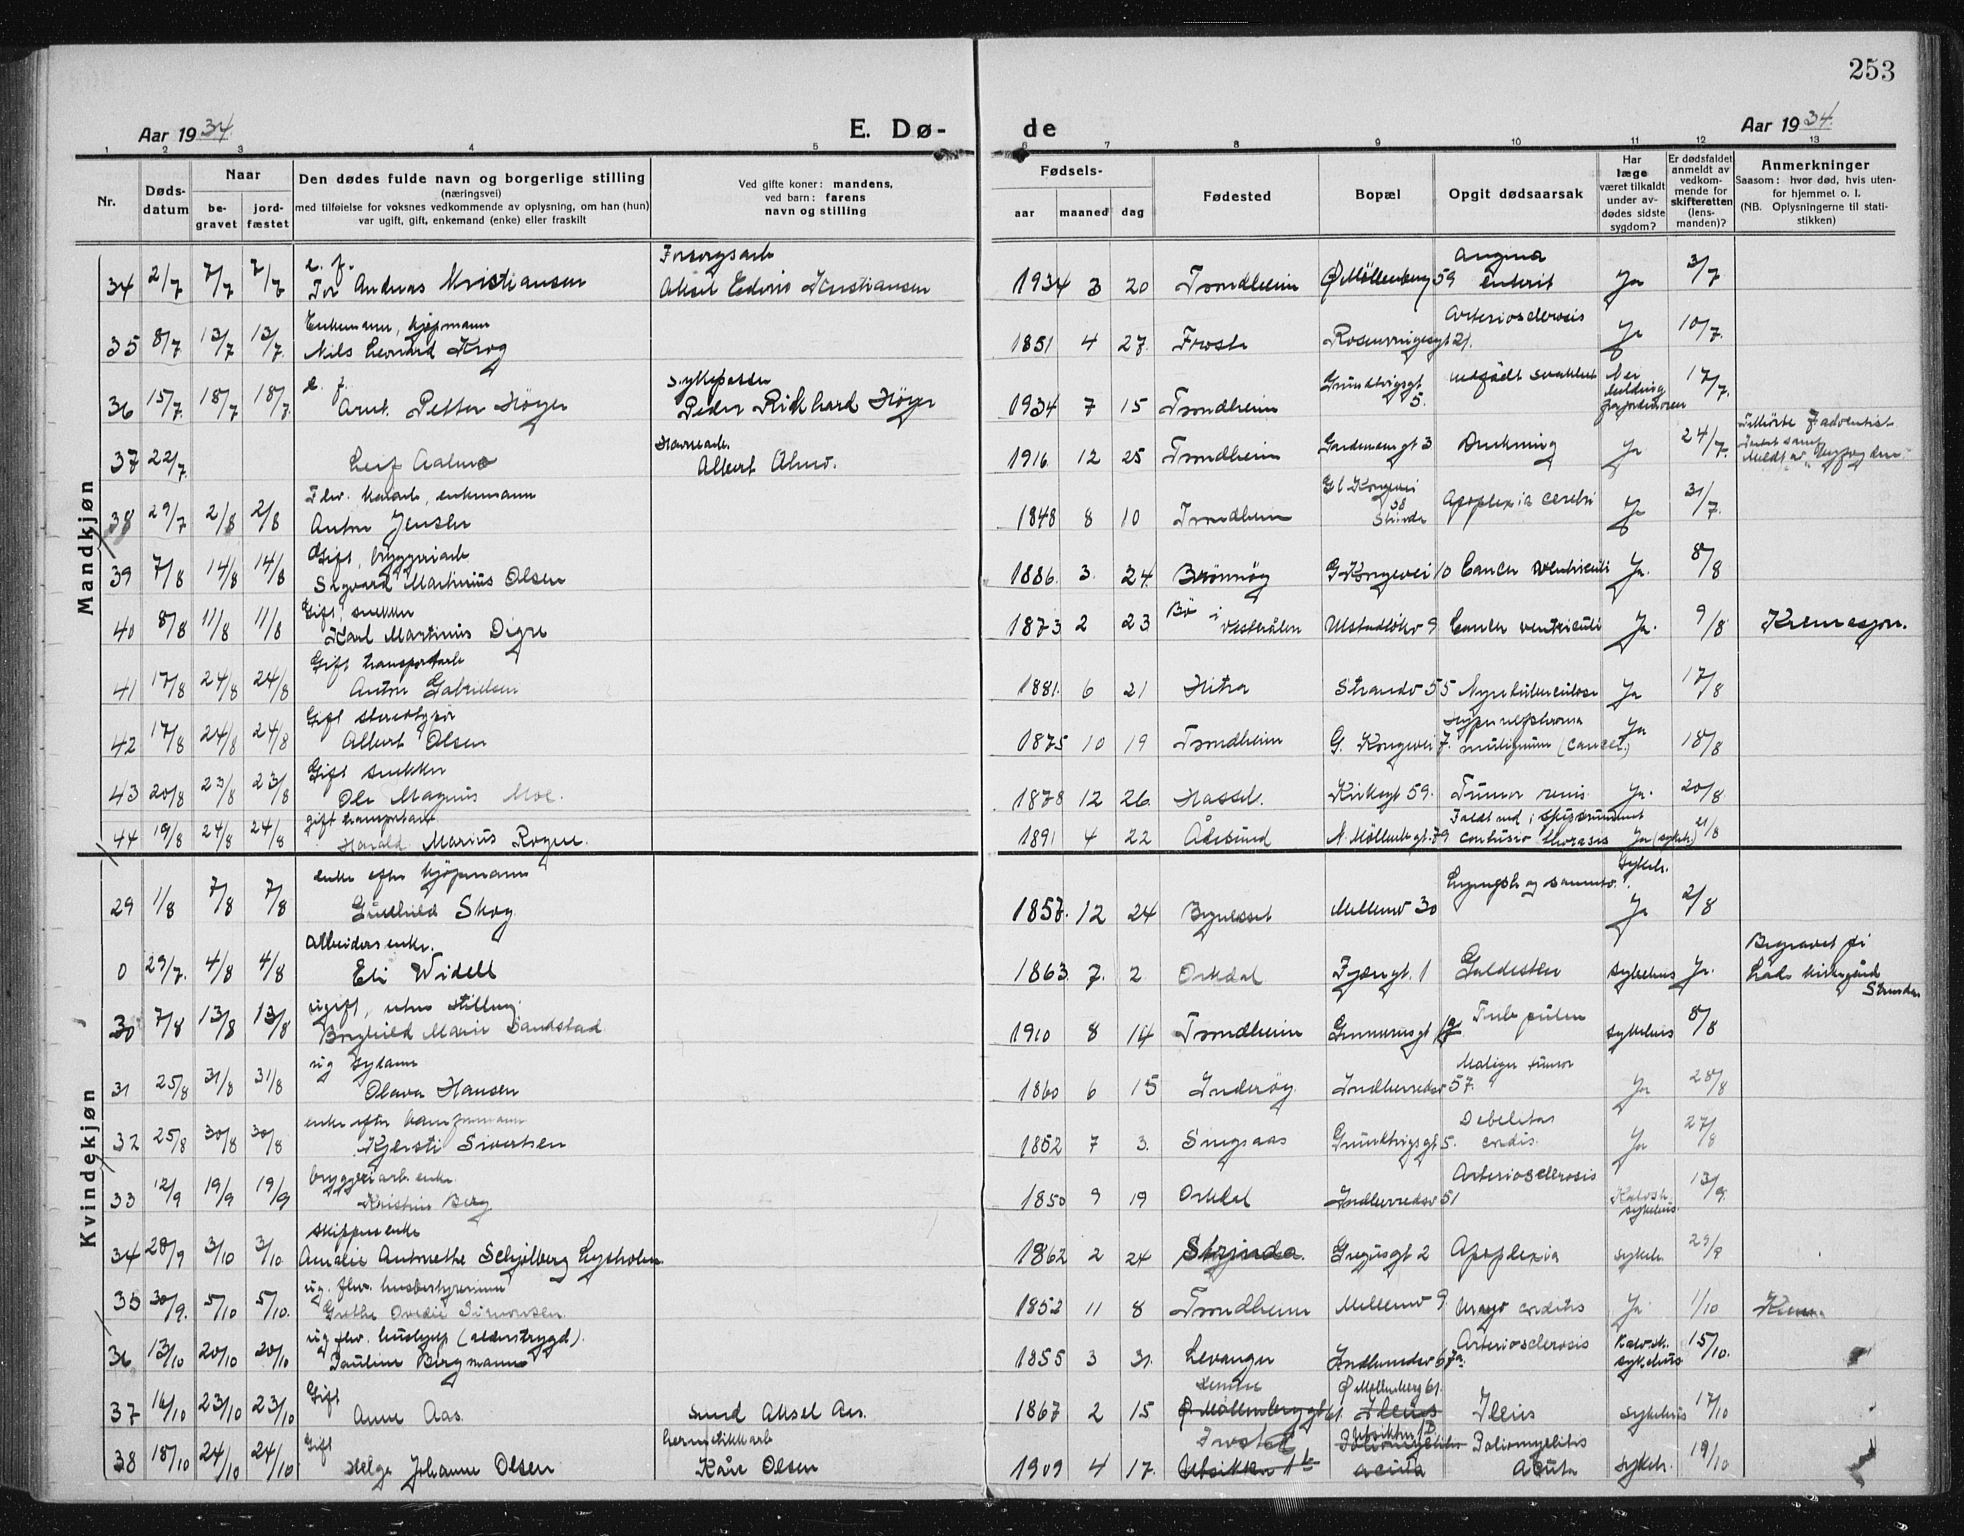 253
Aar 1934.
E. Dø-
de
Aar 1934.
1 2 3 4 5 6 7 8 9 10 11 12 13
Nr.
Døds-
datum
Naar
be-
gravet
jord-
fæstet
Den dødes fulde navn og borgerlige stilling
(næringsvei)
med tilføielse for voksnes vedkommende av oplysning, om han (hun)
var ugift, gift, enkemand (enke) eller fraskilt
Ved gifte koner: mandens,
ved barn: farens
navn og stilling
Fødsels-
aar
maaned
dag
Fødested
Bopæl
Opgit dødsaarsak
Har
læge
været tilkaldt
under av-
dødes sidste
sygdom?
Er dødsfaldet
anmeldt av
vedkom-
mende for
skifteretten
(lens-
manden)?
Anmerkninger
Saasom: hvor død, hvis uten-
for hjemmet o. l.
(NB. Oplysningerne til stati-
stikken)
Mandkjøn
34 2/7 7/7 7/7 e. f. Tor Andreas Kristiansen Forsorgsarb Aksel Edvin Kristiansen 1934 3 20 Trondheim Ø Møllenberg 59 Angina enterit Ja 3/7
35 8/7 13/7 13/7 Enkemann, kjøpmann Nils Leonard Krog 1851 4 27 Frosta Rosenvingesgt 21. Arteriosclerosis Ja 10/7.
36 15/7. 18/7 18/7 e. f. Arnt Petter Høyer Sykepasser Peder Rikhard Høyer 1934 7 15 Trondheim Grundtvigsgt 5. medfødt svakhet 17/7.
37 22/7. Leif Aalmo Havnearb. Albert Almo. 1916 12 25 Trondheim Gardemoensgt 3 Drukning Ja 24/7. Tilhørte 7 adventist
38 29/7 2/8 2/8 Fhv. enkemann Anton Jensen 1848 8 10 Trondheim Gl Kongevei 38 Strinda Apoplexia cerebri Ja 31/7.
39 7/8 14/8 14/8 Gift, bryggeriarb Sigvard Martinius Olsen 1886. 3. 24. Brønnøy G Kongevei 10 Cancer ventriculi Ja. 8/8
40 8/8 11/8 11/8 Gift, snekker Karl Martinus Digre 1873 2 23 Bø i Vesterålen Ulstadløkv 9 Cancer ventriculi Ja. 9/8 Kremasjon.
41 17/8 24/8 24/8 Gift transportarb Anton Gabrielsen 1881. 6 21 Hitra Strandv 55 Nyretuberculose Ja 17/8
42 17/8 24/8 24/8 Gift stereotypør Albert Olsen 1875 10 19 Trondheim G. Kongevei 7. Hypernefroma malignum (cancer) Ja 18/8
43 20/8 23/8 23/8 Gift snekker Ole Magnus Moe. 1878 12 26. Hassel. Kirkegt 59. Tumor renis Ja. 20/8.
44 19/8 24/8 24/8 gift transportarb Harald Marius Rogne. 1891 4 22 Ålesund N. Møllenbgt. 79 Faldt ned i contusio thoracis Ja (sykeh.) 21/8
Kvindekjøn
29 1/8 7/8 7/8 enke efter kjøpmann Gudhild Skog 1857. 12 24 Bynesset Mellemv 30 Sykeh. Ja 2/8
0 29/7. 4/8 4/8 Arbeiders enke. Eli Widell 1863. 7. 2 Orkdal Fjæregt. 1 Galdesten sykehus Ja. Begravet på Lade kirkegård Strinda
30 7/8 13/8 13/8 ugift, uten stilling. Borghild Marie Sandstad 1910 8 14 Trondheim Gunnerusgt Tub. pulm sykehus 8/8
31 25/8 31/8 31/8 ug sydame Olava Hansen 1860 6 15 Inderøy Indherredsv 57. Malign tumor Ja 28/8
32 25/8 30/8 30/8 enke efter Kjersti Sivertsen 1852 7 3. Singsaas Grundtvigsgt 5. Debilitas cordis. Ja 27/8
33 12/9 19/9 19/9 bryggeriarb. enke. Kristine Berg 1850 9 19 Orkdal Indherredsv 51 Arteriosclerosis Kalvsk. sykehus. 13/9.
34 28/9 3/10 3/10 Skippers enke Amalie Antonette Schjølberg Lysholm 1862 2 24 Strinda. Gregusgt 2 Apoplexia sykeh. 29/9
35 30/9. 5/10 5/10. ug. fhv. husbestyrerinne Grethe Ovedie Simonsen. 1852 11 8 Trondheim Mellemv 9. Myo corditis Ja 1/10
36 13/10 20/10 20/10 ug fhv. hushjelp (alderstrygd). Pauline Bergmann 1855 3 31. Levanger Indherredsv 67a. Arteriosclerosis Kalvsk. sykehus 15/10.
37 16/10 23/10 23/10 Gift Anne Aas. smed Aksel Aas. 1867 2 15 Ø Møllenberggt 61. Ø Møllenberg 61. Ileus Ileus sykehus 17/10
38 18/10 24/10 24/10 Gift Helga Johanne Olsen hermetikkarb Kåre Olsen 1909 4 17. Frosta Ubsikken 1b Poliomyelitis acuta Poliomyelitis Acuta sykeh. 19/10